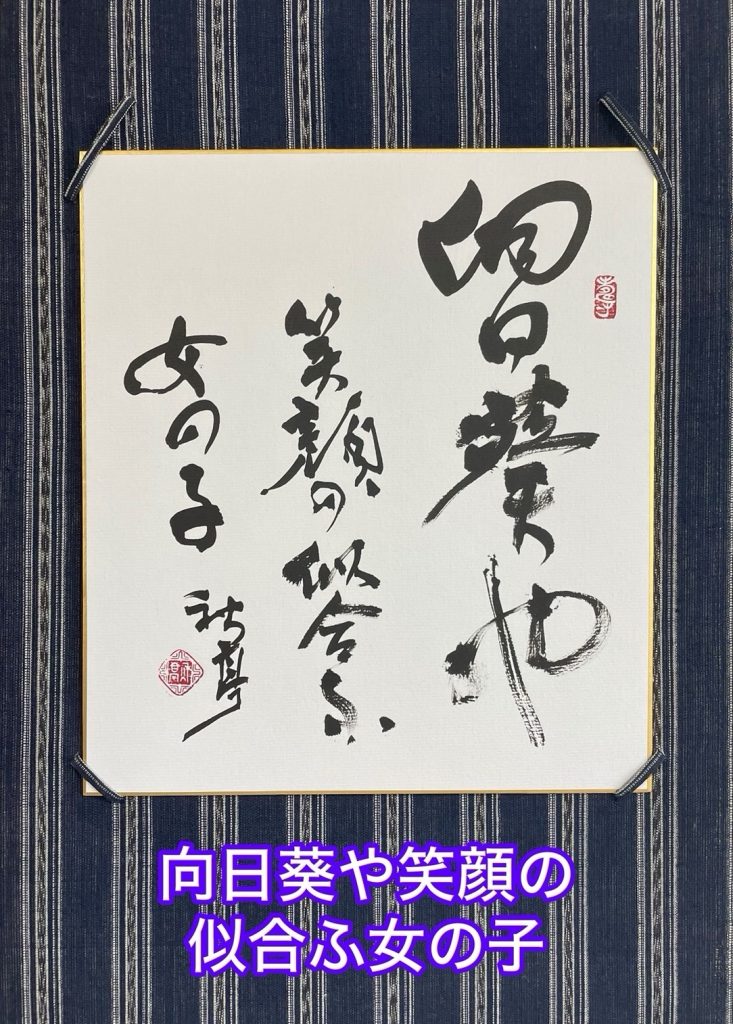 向日葵や
笑顔の似合ふ
女の子
向日葵や笑顔の
似合ふ女の子